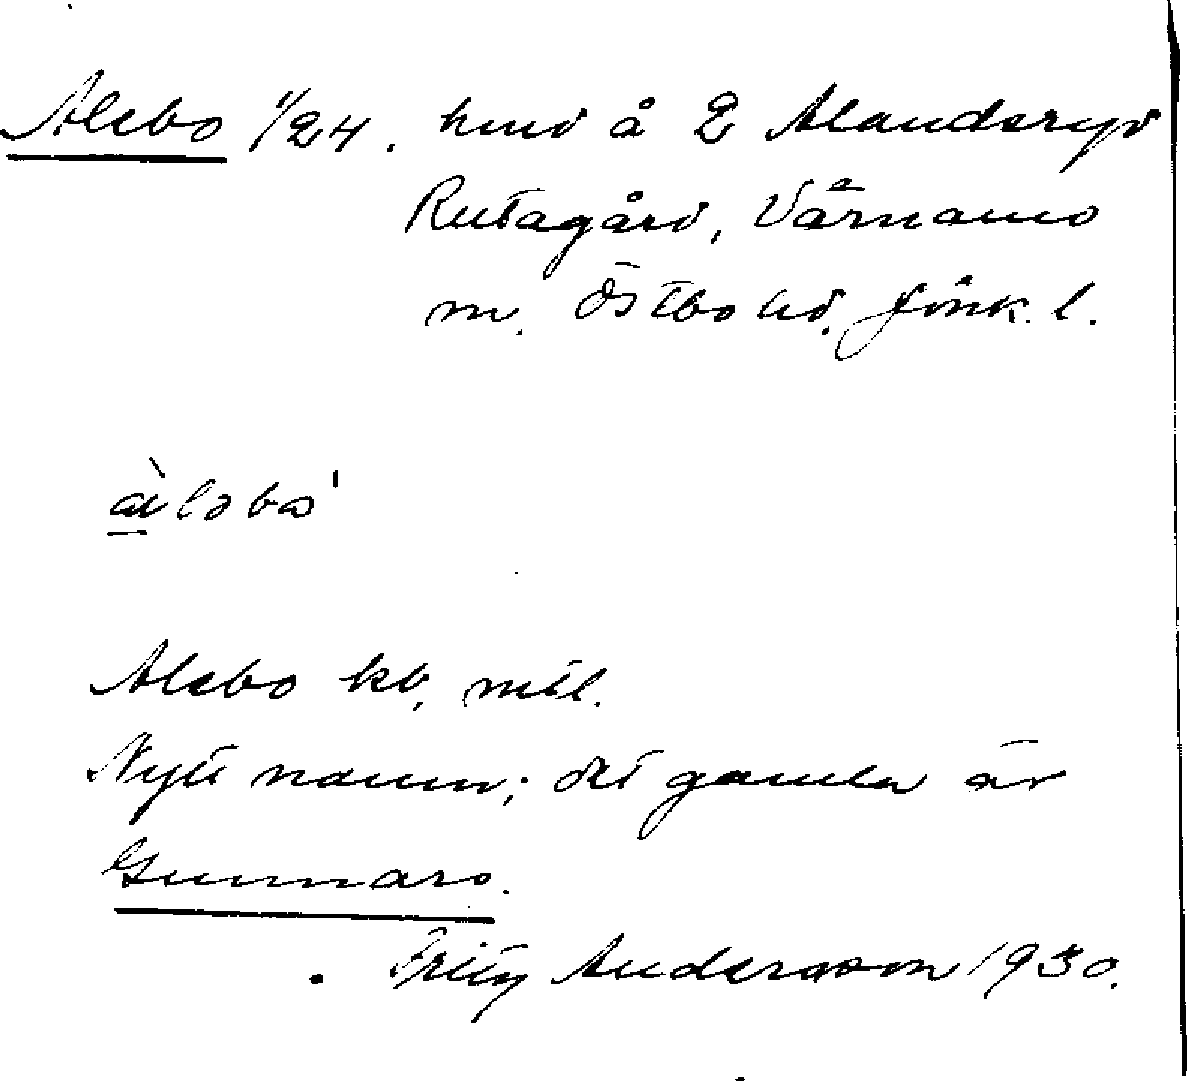 Alebo 1/24. hmd å 2 Alanderyd
Rutagård, Värnamo
m. Östbo hd. Jönk. l.
àləbo'
Alebo kb, mtl.
Nytt namn; det gamla är
Gunnars.
Fritz Andersson 1930.